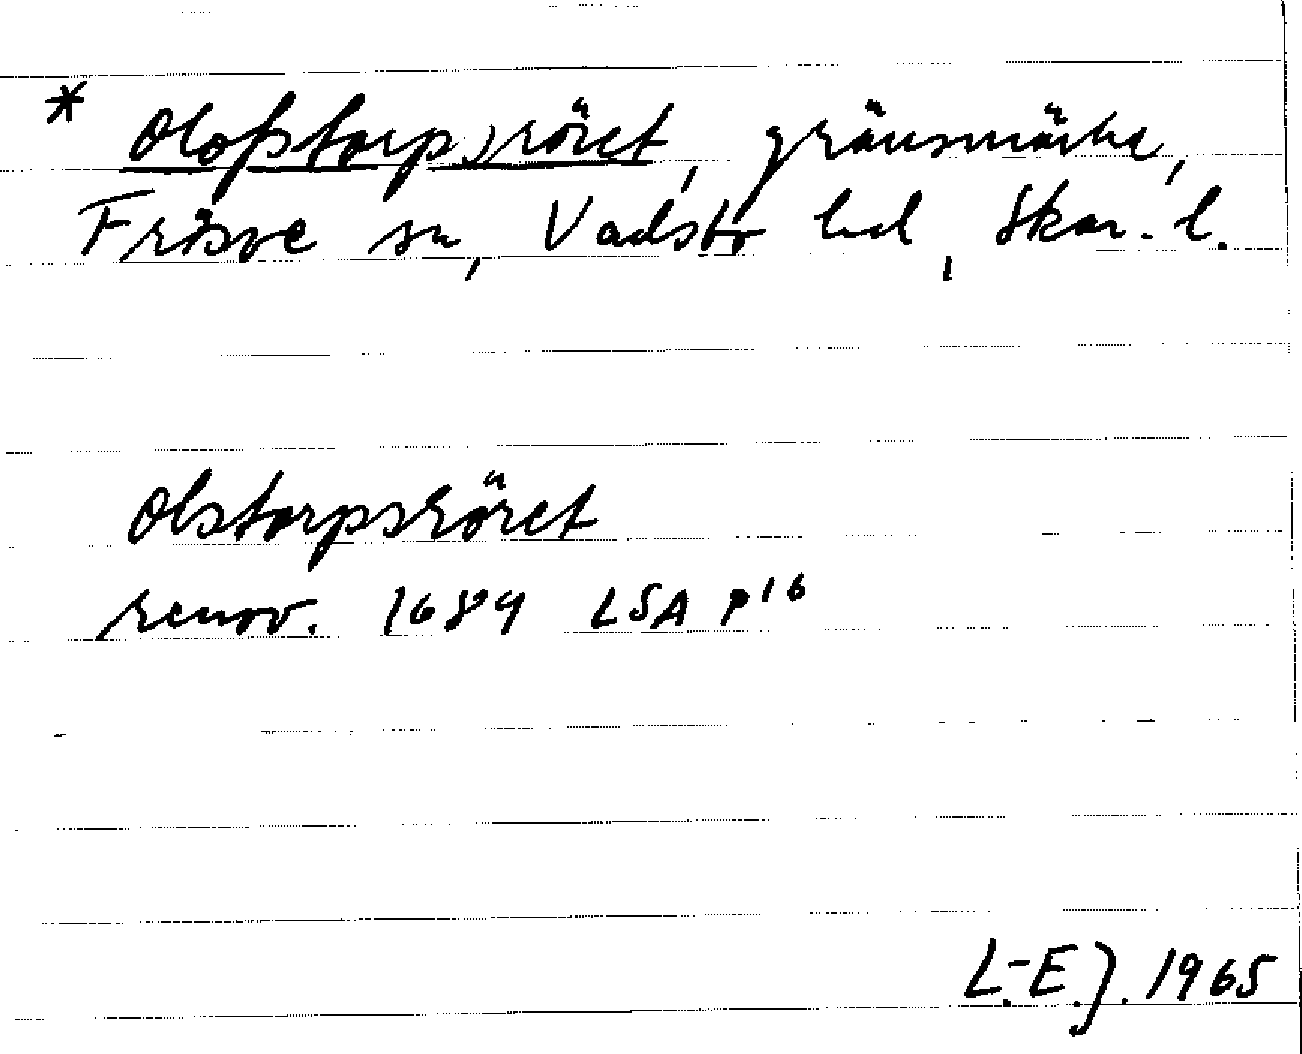 * Olofstorpsröret, gränsmärke,
Frösve sn, Vadsbo hd, Skar. l.
Olstorpsröret
renov. 1689 LSA P 16
L.-E.J. 1965